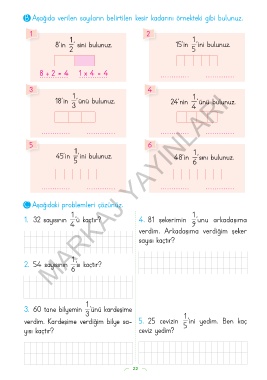 B Aşağıda verilen sayıların belirtilen kesir kadarını örnekteki gibi bulunuz.
1
8'in 1/2'sini bulunuz.
8 ÷ 2 = 4 1 x 4 = 4
2
15'in 1/5'ini bulunuz.
3
18'in 1/3'ünü bulunuz.
4
24'nin 1/4'ünü bulunuz.
5
45'in 1/5'ini bulunuz.
6
48'in 1/6'sını bulunuz.
C Aşağıdaki problemleri çözünüz.
1. 32 sayısının 1/4'ü kaçtır?
2. 54 sayısının 1/6'sı kaçtır?
3. 60 tane bilyemin 1/3'ünü kardeşime
verdim. Kardeşime verdiğim bilye sa-
yısı kaçtır?
4. 81 şekerimin 1/9'unu arkadaşıma
verdim. Arkadaşıma verdiğim şeker
sayısı kaçtır?
5. 25 cevizin 1/5'ini yedim. Ben kaç
ceviz yedim?
MARKAJ YAYINLARI
22